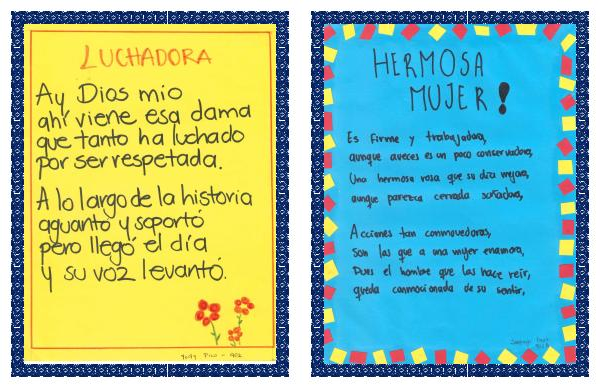 LUCHADORA
Ay Dios mio
ahí viene esa dama
que tanto ha luchado
por ser respetada.
A lo largo de la historia
aguantó y soportó
pero llegó el día
y su voz levantó.
Yudy Pico - 902
HERMOSA
MUJER!
Es firme y trabajadora,
aunque aveces es un poco conservadora,
Una hermosa rosa que su día mejora,
aunque parezca cerrada soñadora,
Acciones tan conmovedoras,
Son las que a una mujer enamora,
Pues el hombre que las hace reír,
queda conmocionada de su sentir,